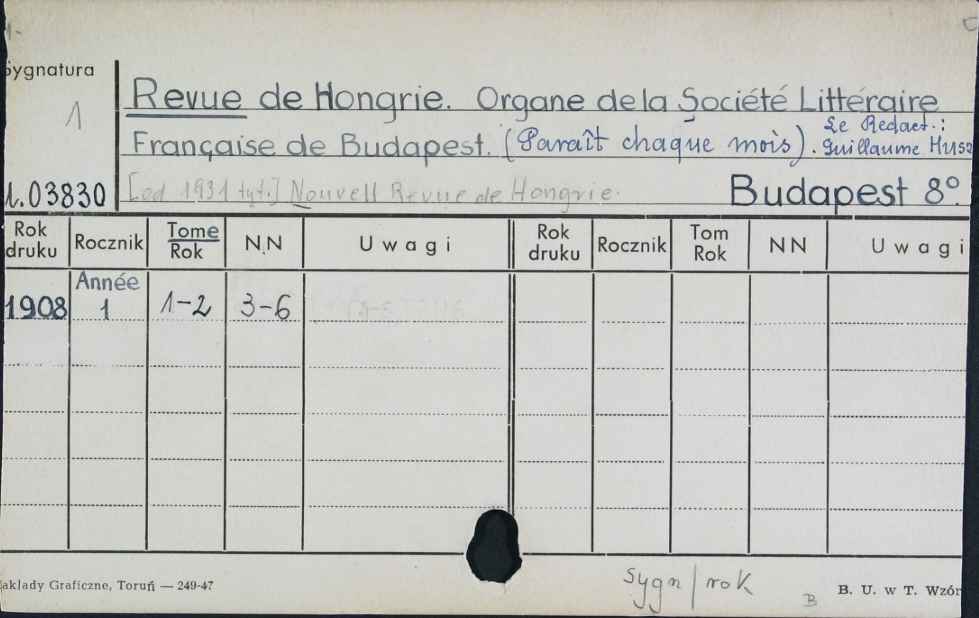 Sygnatura
1
Revue de Hongrie. Organe de la Société Littéraire
Française de Budapest. (Paraît chaque mois). Le Redact.: Guillaume Husz
1.03830 [od 1931 tyt.] Nouvell Revue de Hongrie.
Budapest 8°.
Rok druku Rocznik Tome Rok N.N Uwagi Rok druku Rocznik Tom Rok N N Uwagi
Année
1908 1 1-2 3-6
akłady Graficzne, Toruń — 249-47
Sygn/rok
B
B. U. w T. Wzór